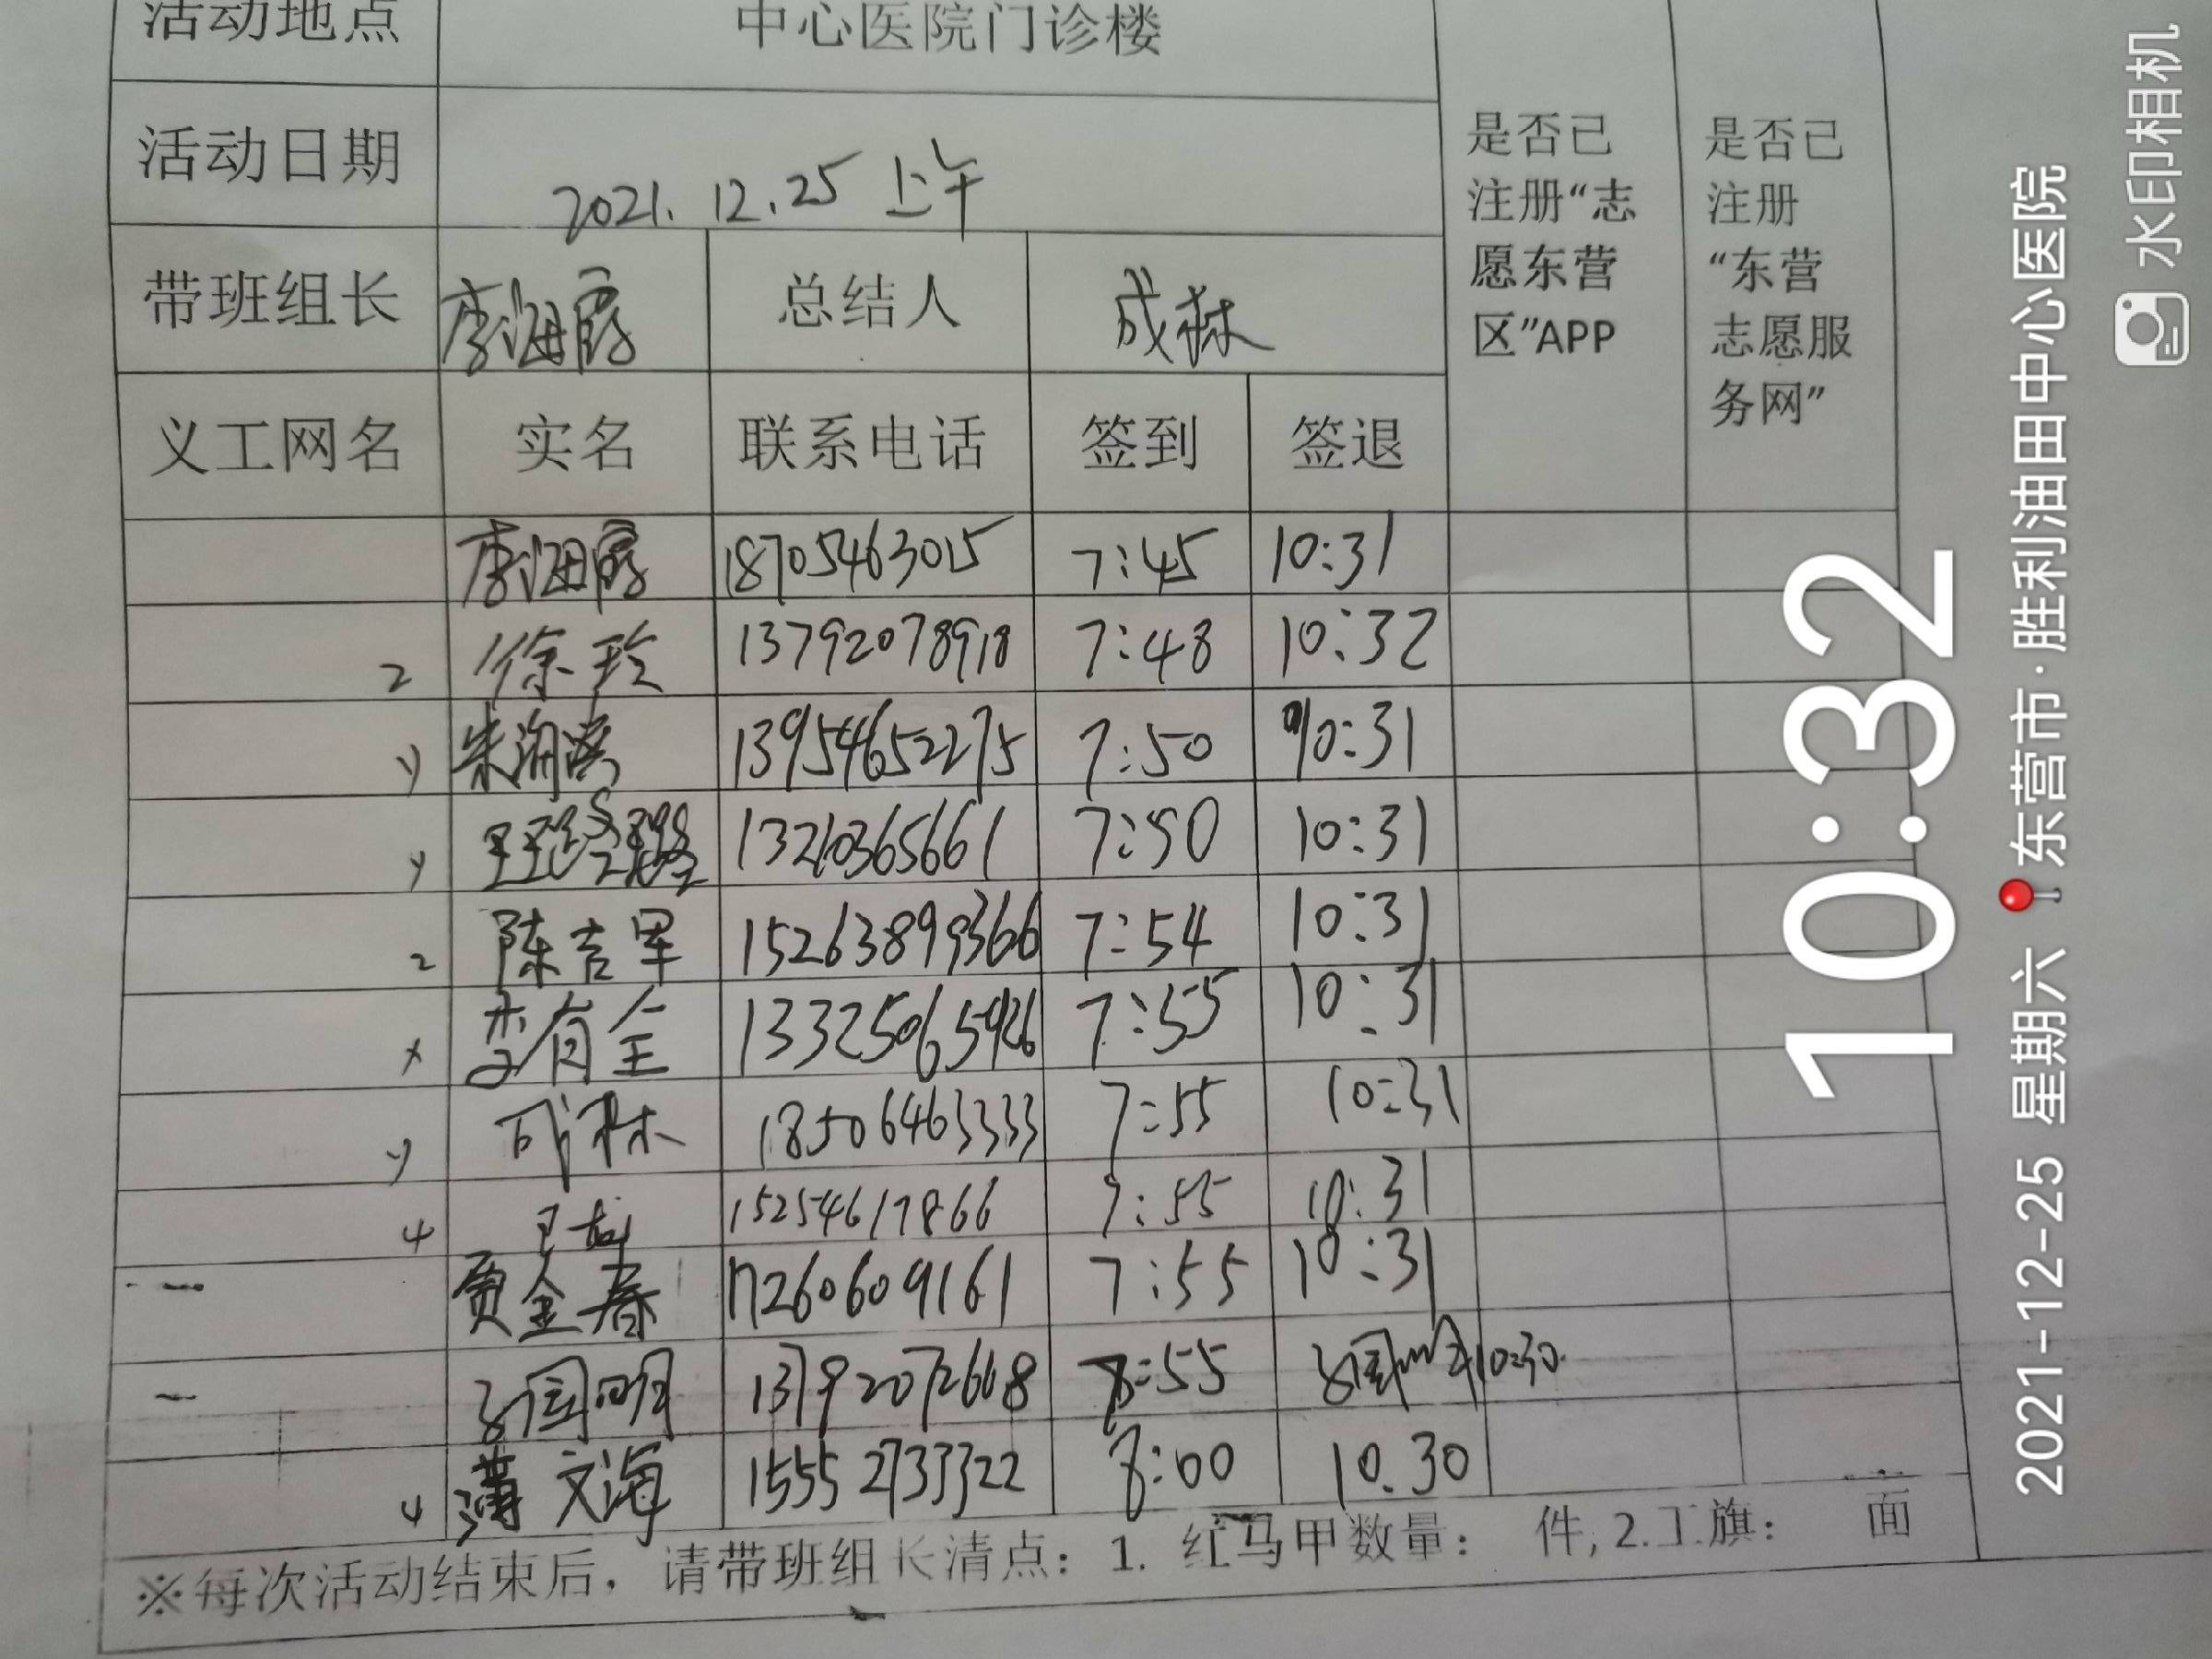 活动地点 中心医院门诊楼
活动日期 2021.12.25 上午
是否已注册“志愿东营区”APP
是否已注册“东营志愿服务网”
带班组长 李海霞 总结人 成林
义工网名 实名 联系电话 签到 签退
李海霞 18705463015 7:45 10:31
2 徐玲 13792078918 7:48 10:32
y 朱海滨 13954652275 7:50 10:31
y 13210365661 7:50 10:31
2 陈吉军 15263899366 7:54 10:31
x 李有全 13325065926 7:55 10:31
y 成林 18506463333 7:55 10:31
4 15254617866 7:55 10:31
一 贾金春 17260609161 7:55 10:31
一 国明 13792072668 8:55 国明 10:30.
4 薄文海 15552733322 8:00 10.30
※每次活动结束后，请带班组长清点：1. 红马甲数量： 件; 2.工旗： 面
10:32
2021-12-25 星期六 东营市·胜利油田中心医院
水印相机